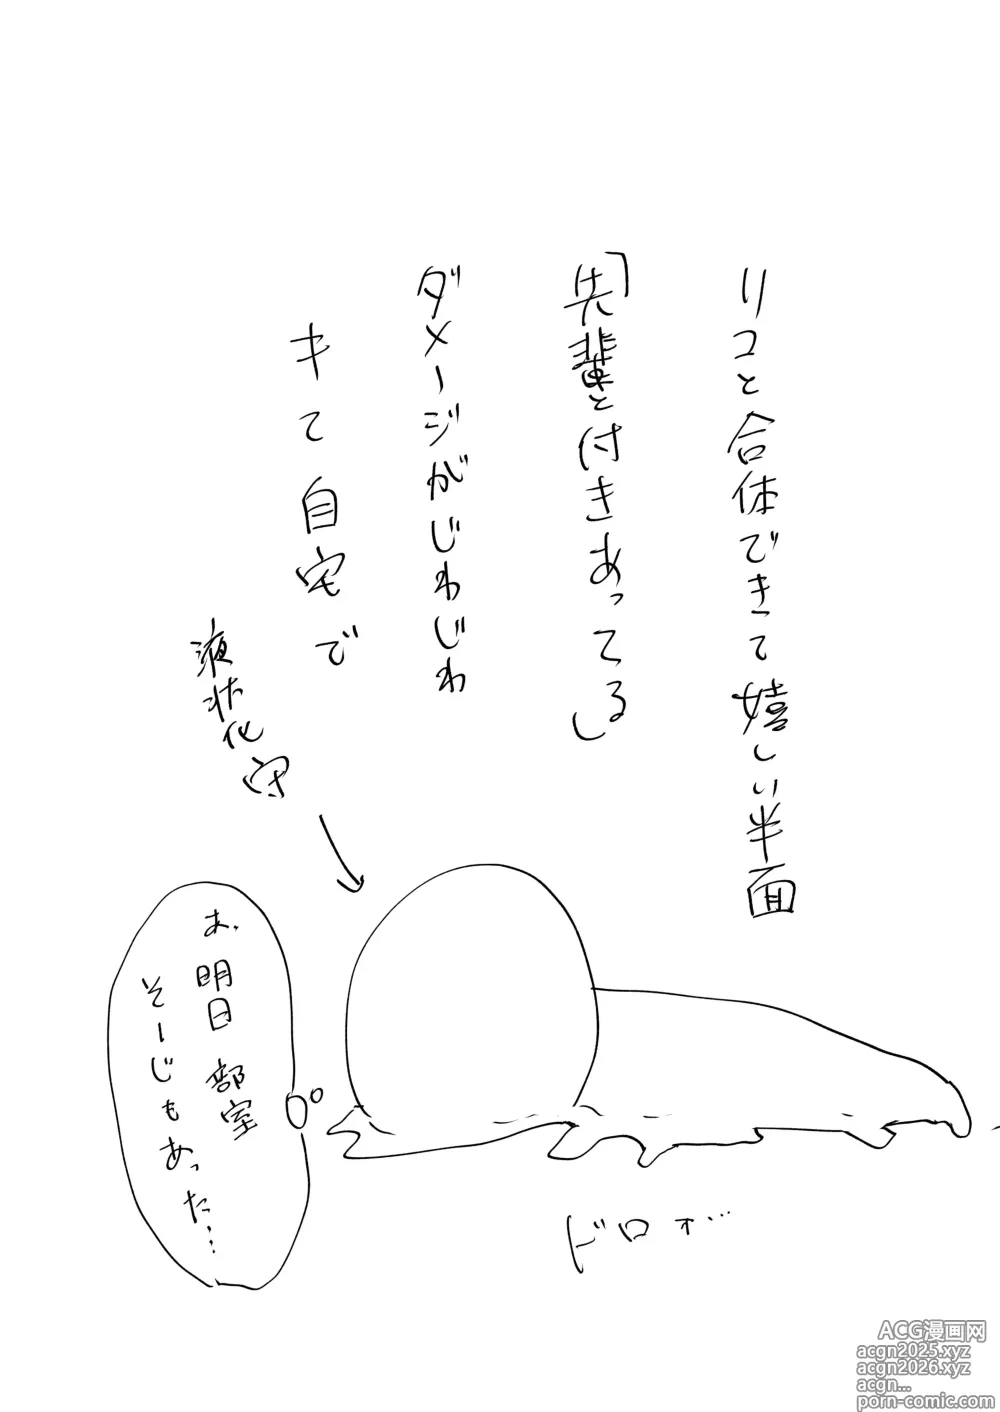 リコと合体できて嬉しい半面
「先輩と付きあってる」
ダメージがじわじわ
キて自宅で
液状化守
あ、明日部室
そーじもあった…
ドロォ…
ACG漫画网
acgn2025.xyz
acgn2026.xyz
acgn...
porn-comic.com